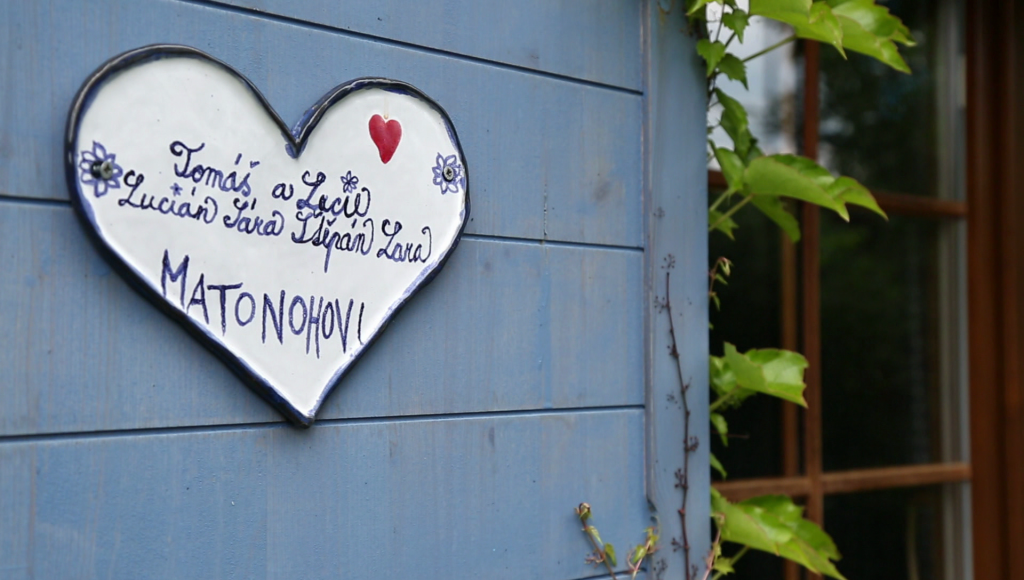 Tomáš a Lucie
Lucián Sára Štěpán Lara
MATONOHOVI